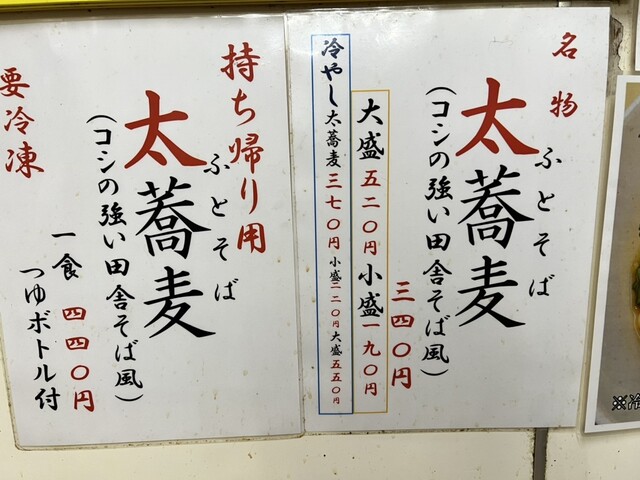 名物
太蕎麦
ふとそば
(コシの強い田舎そば風)
三四〇円
大盛五二〇円小盛一九〇円
冷やし太蕎麦三七〇円小盛二二〇円大盛五五〇円
持ち帰り用
太蕎麦
ふとそば
(コシの強い田舎そば風)
一食 四四〇円
つゆボトル付
要冷凍
※冷